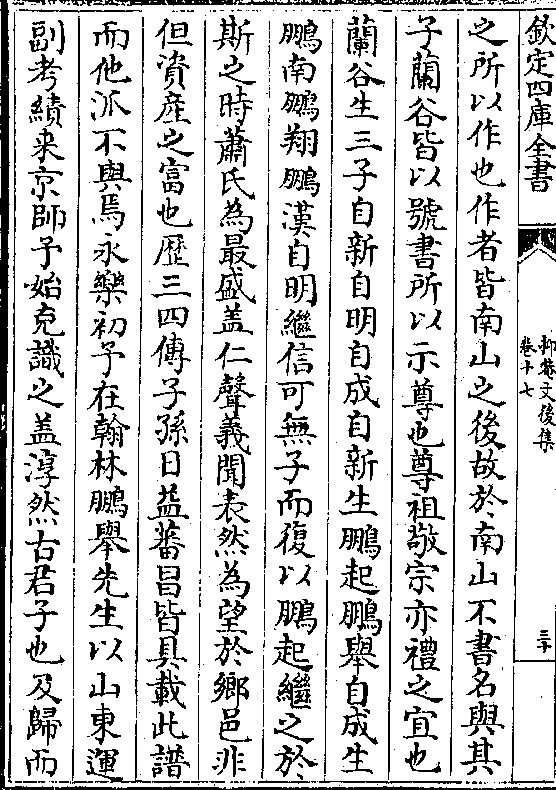 欽定四庫全書
抑菴文後集
卷十七
三十
之所以作也作者皆南山之後故於南山不書名與其
子蘭谷皆以號書所以示尊也尊祖敬宗亦禮之宜也
蘭谷生三子自新自明自成自新生鵬起鵬舉自成生
鵬南鵬翔鵬漢自明繼信可無子而復以鵬起繼之於
斯之時蕭氏為最盛盖仁聲義聞表然為望於鄉邑非
但資産之富也歷三四傳子孫日益蕃昌皆具載此譜
而他派不與焉永樂初予在翰林鵬舉先生以山東運
副考績来京師予始克識之盖淳然古君子也及歸而